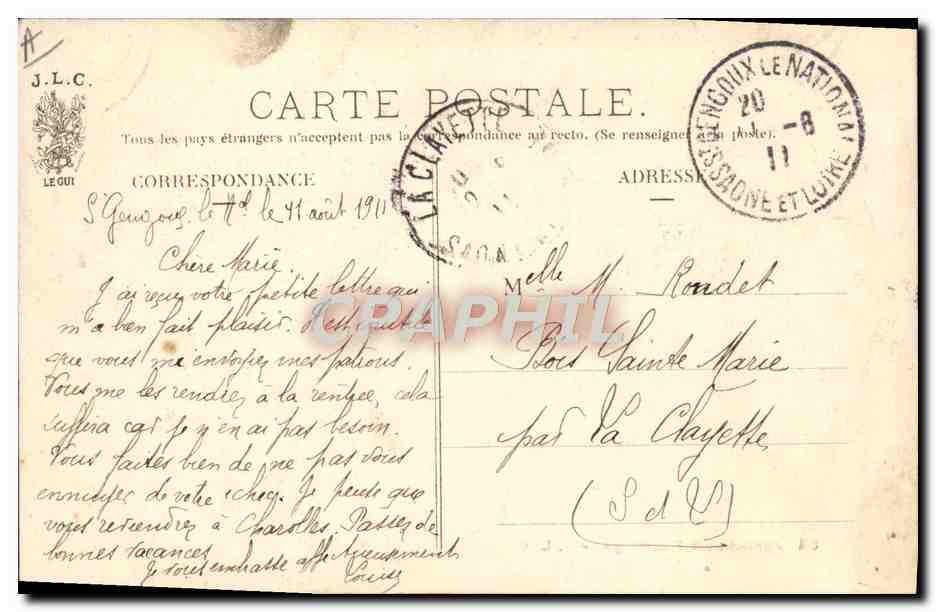 A
J.L.C.
LE GUI
CARTE POSTALE.
Tous les pays étrangers n'acceptent pas la correspondance au recto. (Se renseigner à la poste).
CORRESPONDANCE
ADRESSE
LA CLAYETTE
GENGOUX LE NATIONAL
20
11 -8
11
SAONE ET LOIRE
St Gengoux, le 11 août 1911
Chère Marie.
J'ai reçu votre petite lettre qui
m'a bien fait plaisir. Il est inutile
que vous me envoyiez mes patrons.
Vous me les rendrez à la rentrée, cela
suffira car je n'en ai pas besoin.
Vous faites bien de ne pas vous
ennuyer de votre chez. Je pense que
vous reviendrez à Charolles. Passez de
bonnes vacances
Je vous embrasse affectueusement
Louise
Melle M. Rondet
Bois Sainte Marie
par La Clayette
(S et L)
CPAPHIL